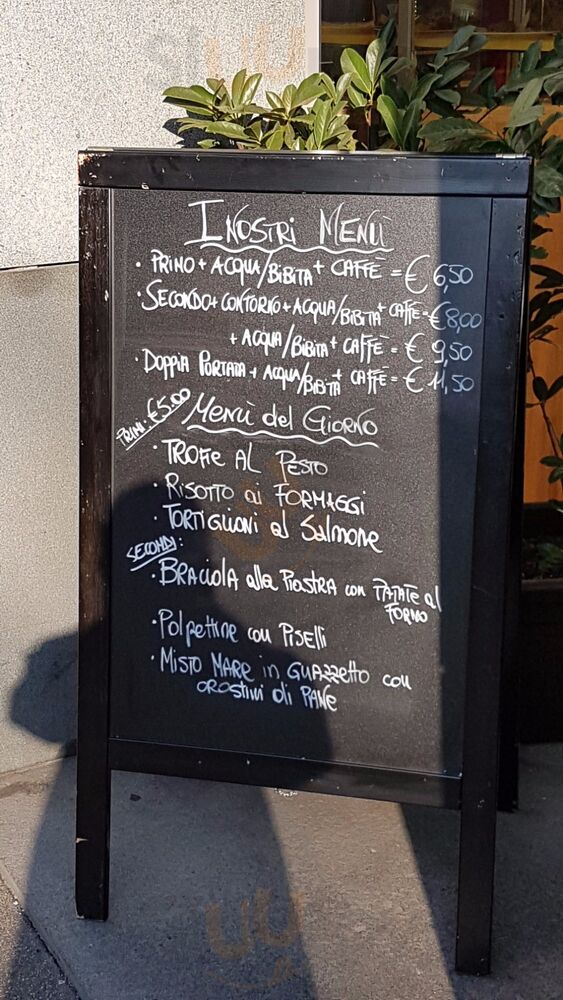 I NOSTRI MENÙ
• PRIMO + ACQUA/BIBITA + CAFFÈ = € 6,50
• SECONDO + CONTORNO + ACQUA/BIBITA + CAFFÈ = € 8,00
+ ACQUA/BIBITA + CAFFÈ = € 9,50
• DOPPIA PORTATA + ACQUA/BIBITA + CAFFÈ = € 11,50
PRIMI: €5.00
Menù del GIORNO
• TROFIE AL PESTO
• RISOTTO ai FORMAGGI
• TORTIGLIONI al Salmone
SECONDI:
• BRACIOLA alla PIASTRA con PATATE al
FORNO
• Polpettine con PISELLI
• MISTO MARE in GUAZZETTO con
CROSTINI di PANE